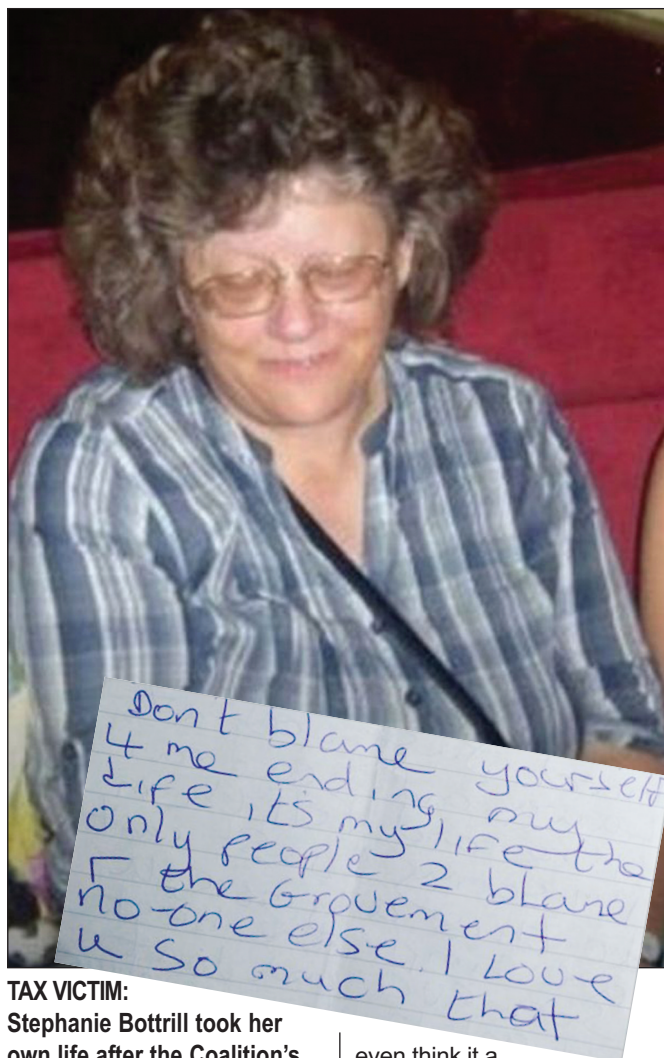 Don t blame yourself
4 me ending my
Life its my life the
only people 2 blame
r the Grovement
no-one else. I Love
u so much that
TAX VICTIM:
Stephanie Bottrill took her
own life after the Coalition's
even think it a